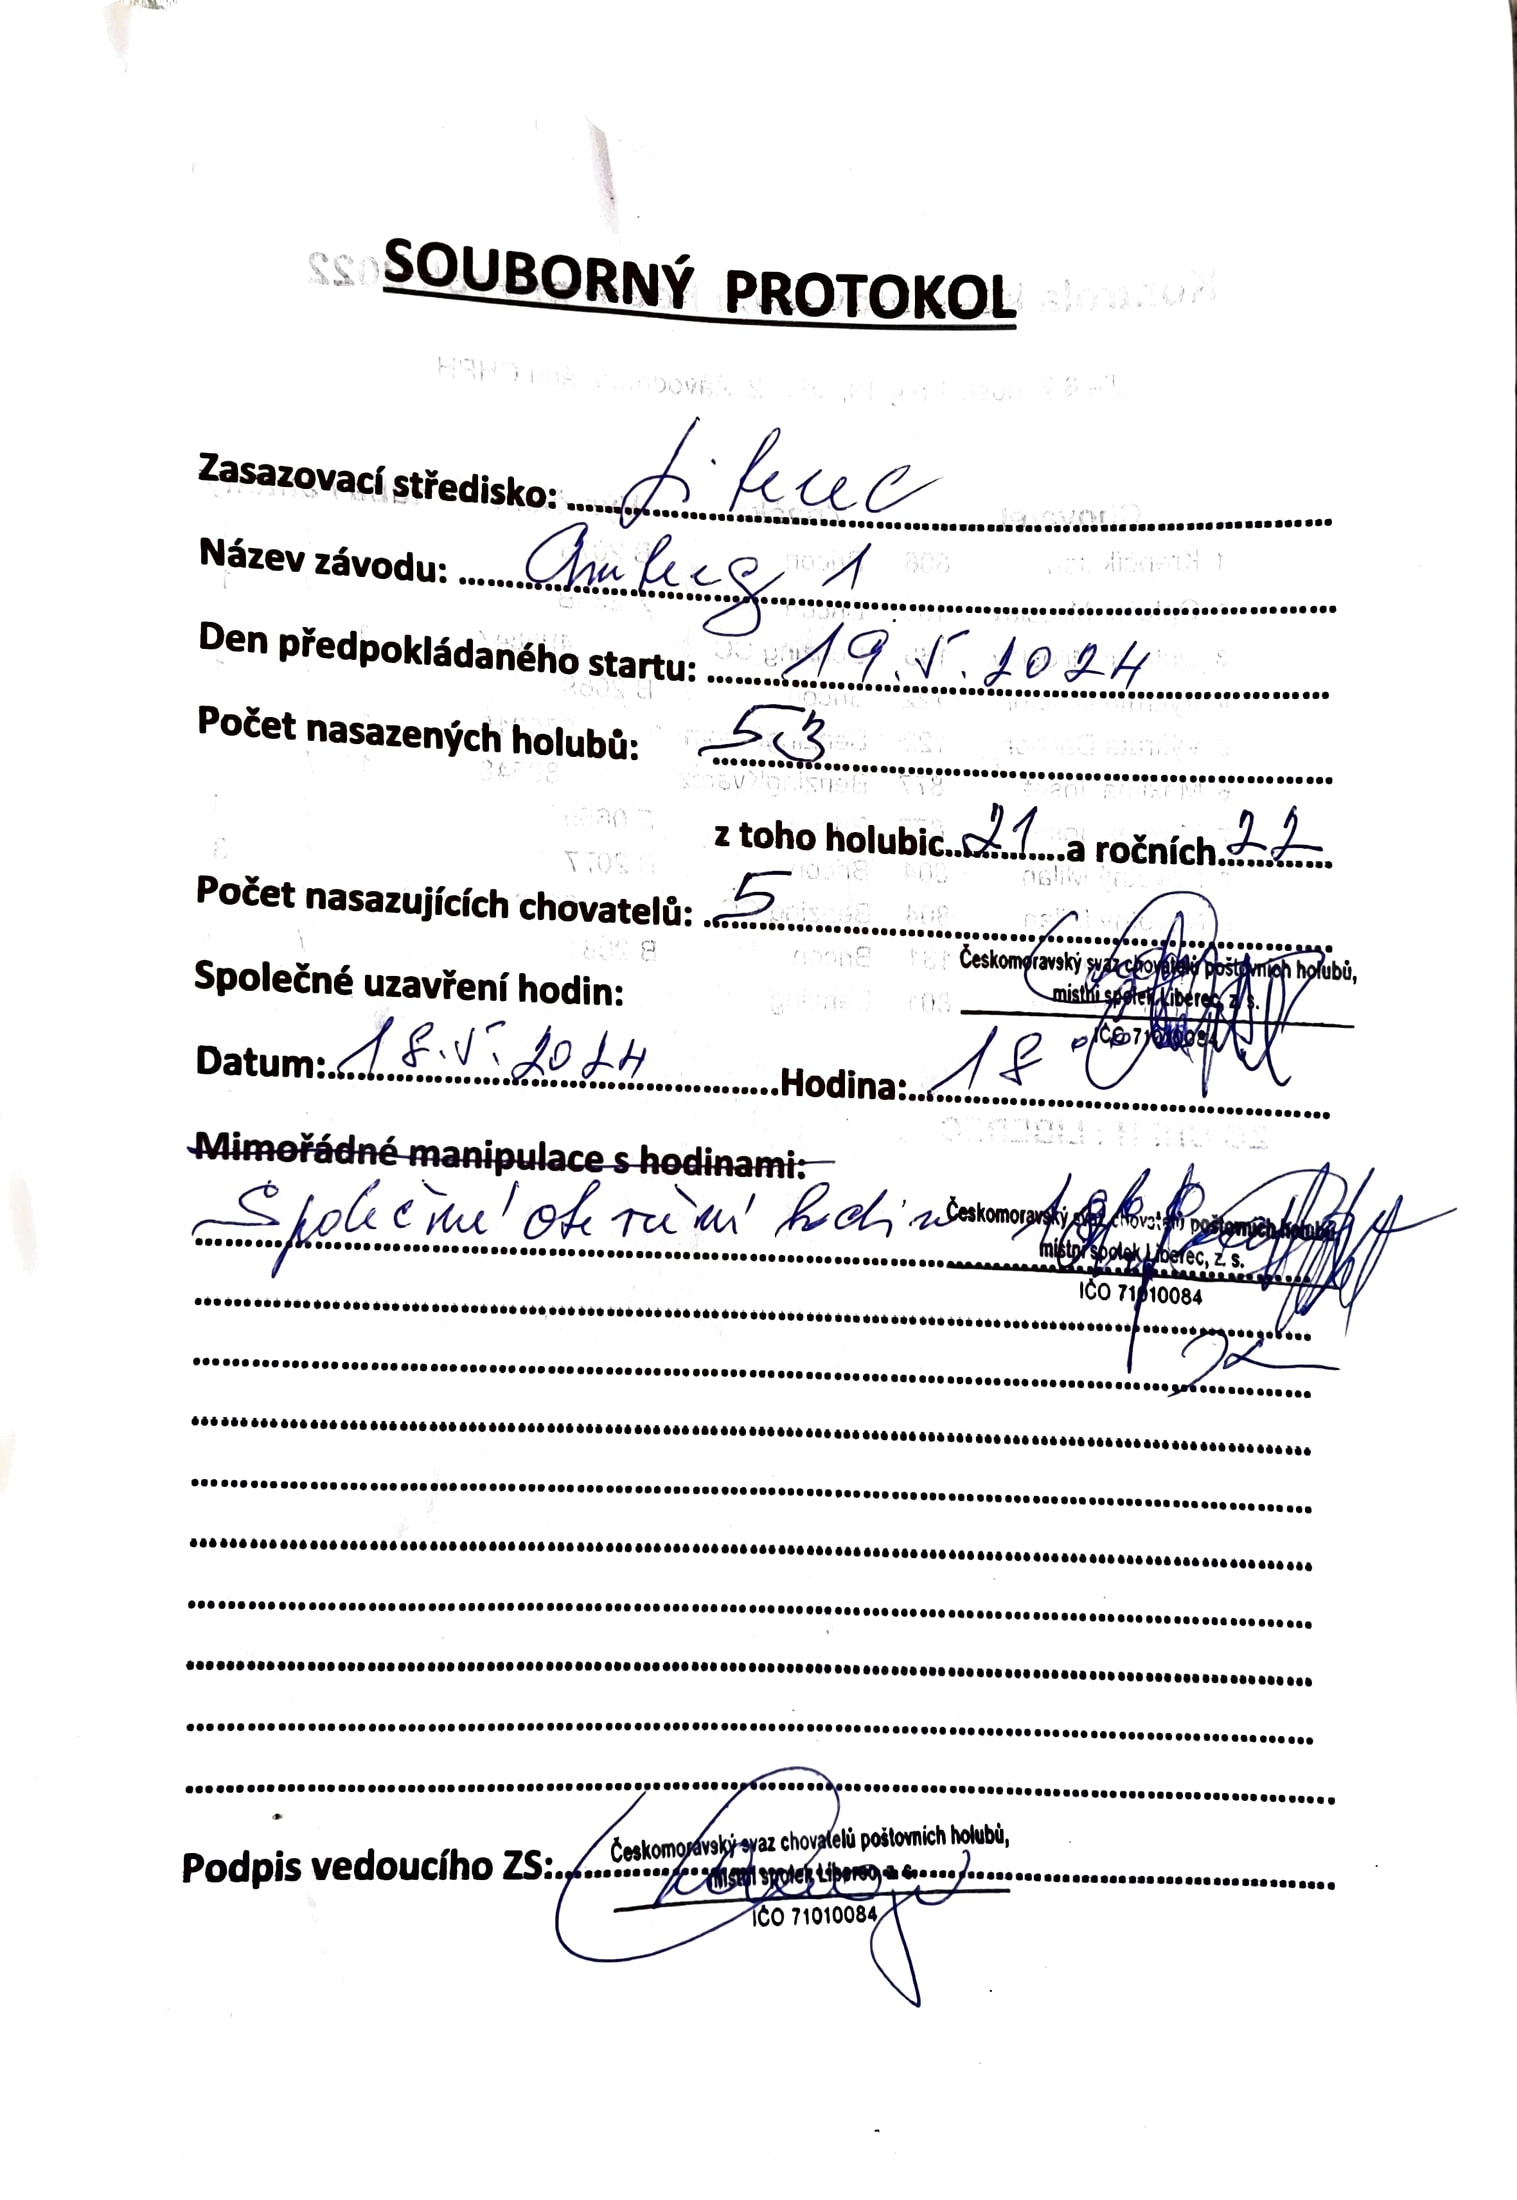 SOUBORNÝ PROTOKOL
Zasazovací středisko: Liberec
Název závodu: Amberg 1
Den předpokládaného startu: 19.V.2024
Počet nasazených holubů: 53
z toho holubic 21 a ročních 22
Počet nasazujících chovatelů: 5
Českomoravský svaz chovatelů poštovních holubů,
místní spolek Liberec, z. s.
IČO 71010084
Společné uzavření hodin:
Datum: 18.V.2024 Hodina: 18
Mimořádné manipulace s hodinami:
Společné otevření hodin
Českomoravský svaz chovatelů poštovních holubů,
místní spolek Liberec, z. s.
IČO 71010084
Podpis vedoucího ZS:
Českomoravský svaz chovatelů poštovních holubů,
místní spolek Liberec, z. s.
IČO 71010084